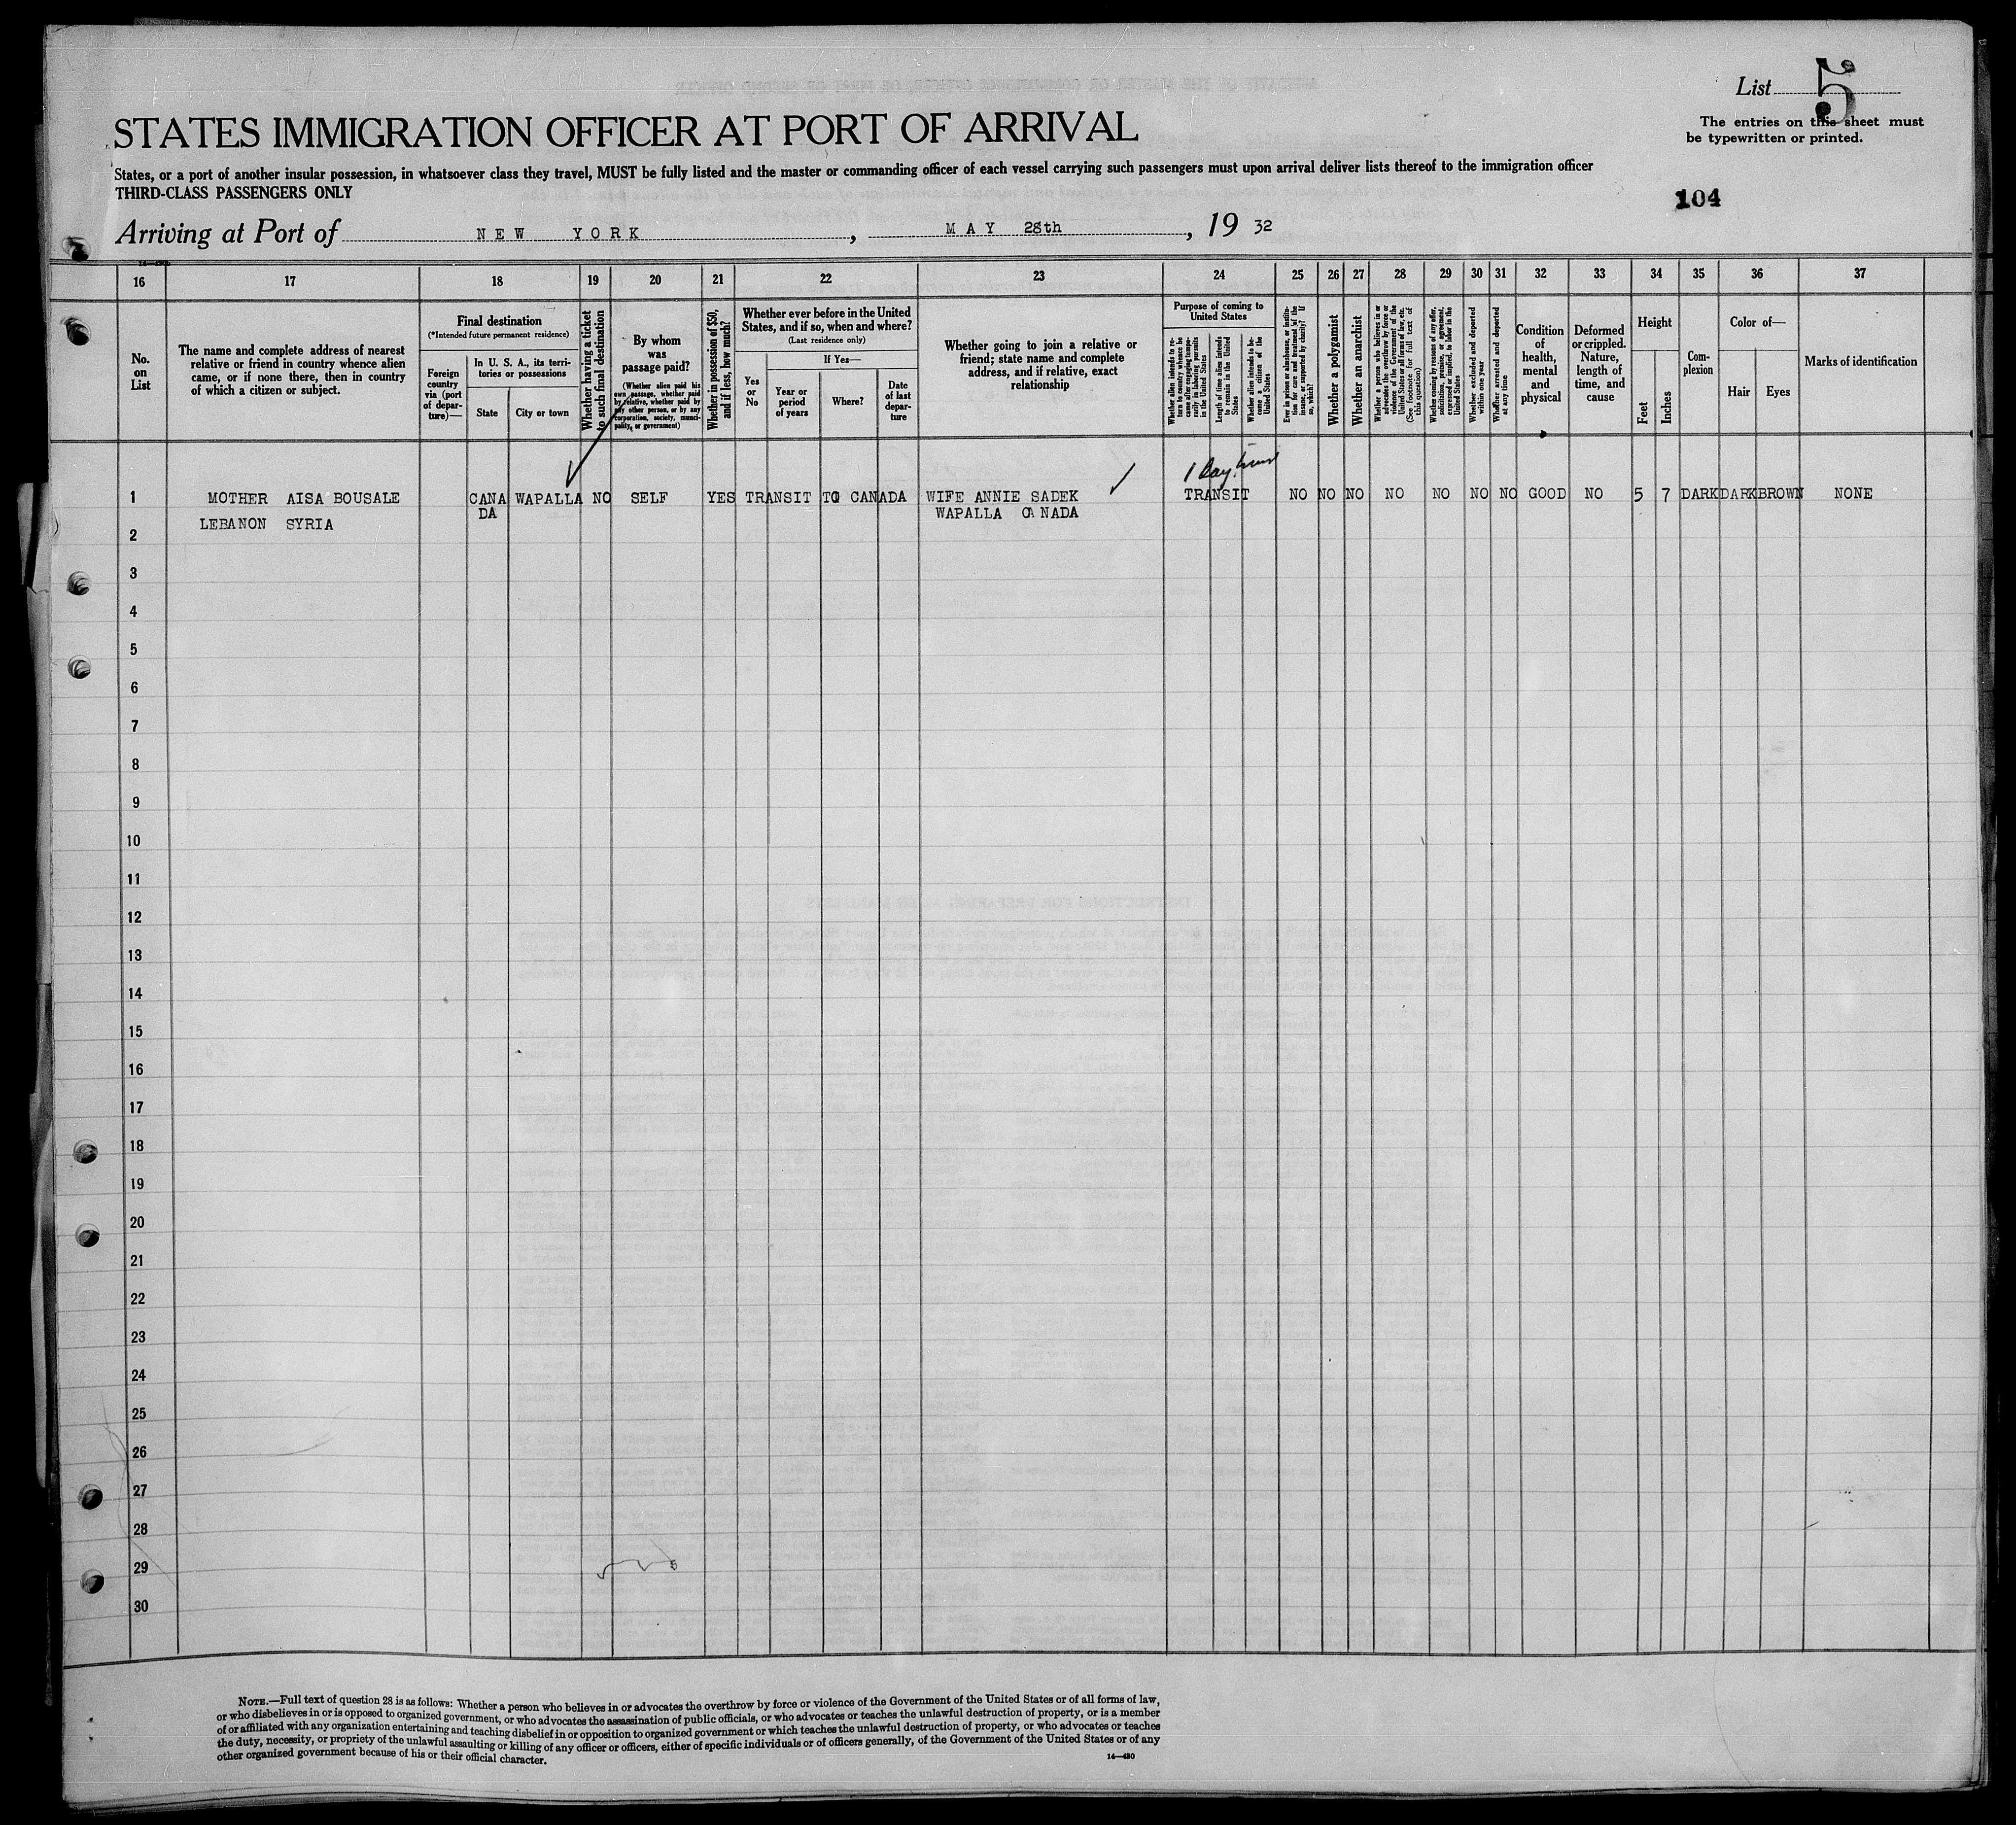 List 5
The entries on this sheet must
be typewritten or printed.
STATES IMMIGRATION OFFICER AT PORT OF ARRIVAL
States, or a port of another insular possession, in whatsoever class they travel, MUST be fully listed and the master or commanding officer of each vessel carrying such passengers must upon arrival deliver lists thereof to the immigration officer
THIRD-CLASS PASSENGERS ONLY
104
Arriving at Port of NEW YORK, MAY 28th, 19 32
16 17 18 19 20 21 22 23 24 25 26 27 28 29 30 31 32 33 34 35 36 37
No.
on
List
The name and complete address of nearest
relative or friend in country whence alien
came, or if none there, then in country
of which a citizen or subject.
Final destination
(*Intended future permanent residence)
Foreign
country
via (port
of depar-
ture)—
In U. S. A., its terri-
tories or possessions
State
City or town
Whether having a ticket
to such final destination
By whom
was
passage paid?
(Whether alien paid his
own passage, whether paid
by relative, whether paid by
any other person, or by any
corporation, society, munci-
pality, or government)
Whether in possession of $50,
and if less, how much?
Whether ever before in the United
States, and if so, when and where?
(Last residence only)
Yes
or
No
If Yes—
Year or
period
of years
Where?
Date
of last
depar-
ture
Whether going to join a relative or
friend; state name and complete
address, and if relative, exact
relationship
Purpose of coming to
United States
Whether alien intends to re-
turn to country whence he
came after engaging tempo-
rarily in laboring pursuits
in the United States
Length of time alien intends
to remain in the United
States
Whether alien intends to be-
come a citizen of the
United States
Ever in prison or almshouse, or institu-
tion for care and treatment of the
insane, or supported by charity? If
so, which?
Whether a polygamist
Whether an anarchist
Whether a person who believes in or
advocates the overthrow by force or
violence of the Government of the
United States or all forms of law, etc.
(See footnote for full text of
this question)
Whether coming by reasons of any offer,
solicitation, promise, or agreement,
expressed or implied, to labor in the
United States
Whether excluded and deported
within one year
Whether arrested and deported
at any time
Condition
of
health,
mental
and
physical
Deformed
or crippled.
Nature,
length of
time, and
cause
Height
Feet
Inches
Com-
plexion
Color of—
Hair
Eyes
Marks of identification
1 Day
1 MOTHER AISA BOUSALE CANA WAPALLA NO SELF YES TRANSIT TO CANADA WIFE ANNIE SADEK TRANSIT NO NO NO NO NO NO NO GOOD NO 5 7 DARK DARK BROWN NONE
DA WAPALLA CANADA
LEBANON SYRIA
2
3
4
5
6
7
8
9
10
11
12
13
14
15
16
17
18
19
20
21
22
23
24
25
26
27
28
29
30
NOTE.—Full text of question 28 is as follows: Whether a person who believes in or advocates the overthrow by force or violence of the Government of the United States or of all forms of law,
or who disbelieves in or is opposed to organized government, or who advocates the assassination of public officials, or who advocates or teaches the unlawful destruction of property, or is a member
of or affiliated with any organization entertaining and teaching disbelief in or opposition to organized government or which teaches the unlawful destruction of property, or who advocates or teaches
the duty, necessity, or propriety of the unlawful assaulting or killing of any officer or officers, either of specific individuals or of officers generally, of the Government of the United States or of any
other organized government because of his or their official character.
14—430